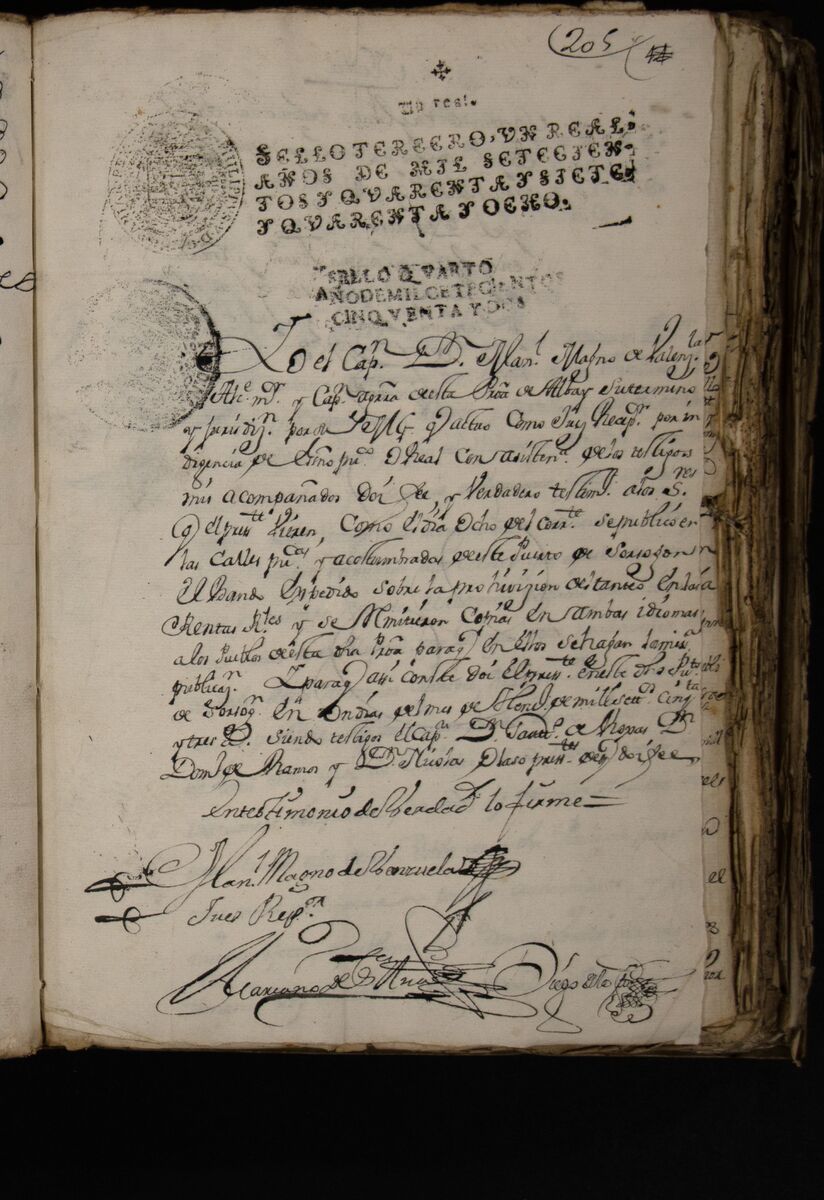 205
Un real.
SELLO TERCERO, VN REAL.
AÑOS DE MIL SETECIEN-
TOS Y QVARENTA Y SIETE,
Y QVARENTA Y OCHO.
SELLO QVARTO
AÑO DE MIL CETECIENTOS
CINQVENTA Y DOS
Yo el Capn. Dn. Manl. Magno de Valenzla
Alce. mr. y Capn. agrra desta Proa de Albay sutermino
y jurisdizn. por su Mg. q actuo como Juez Recepr. por in
digencia de Essno puco. O Real con asistena. de los testigos
mis acompañados doi fee, y Verdadero testimo. alos Sres
q el preste Vieren, Como el dia Ocho del corrte. sepublicó en
las Calles pucas y acostumbradas deeste Puerto de Sorsogon
el Bando Expedido sobre la prohivizion del tanteo en las
Rentas Rles y se Rmitieron Copias en ambas idiomas
alos Pueblos desta dha Proa paraq en ellos sehagan la misma
publicazn. Y paraq assi conste doi el preste en este dho Puto
de Sorsogn. en dias del mes de de mill settos Cinqta
y tres as. siendo testigos el Capn. Dn. Santo. de Rosas, Dn
Domo. de Ramos y Dn. Nicolas Olaso prestes deq doi fee
Entestimonio de Verdad lo firme=
Manl. Magno de Valenzuela
Juez Repor.
Mariano de
Diego de la